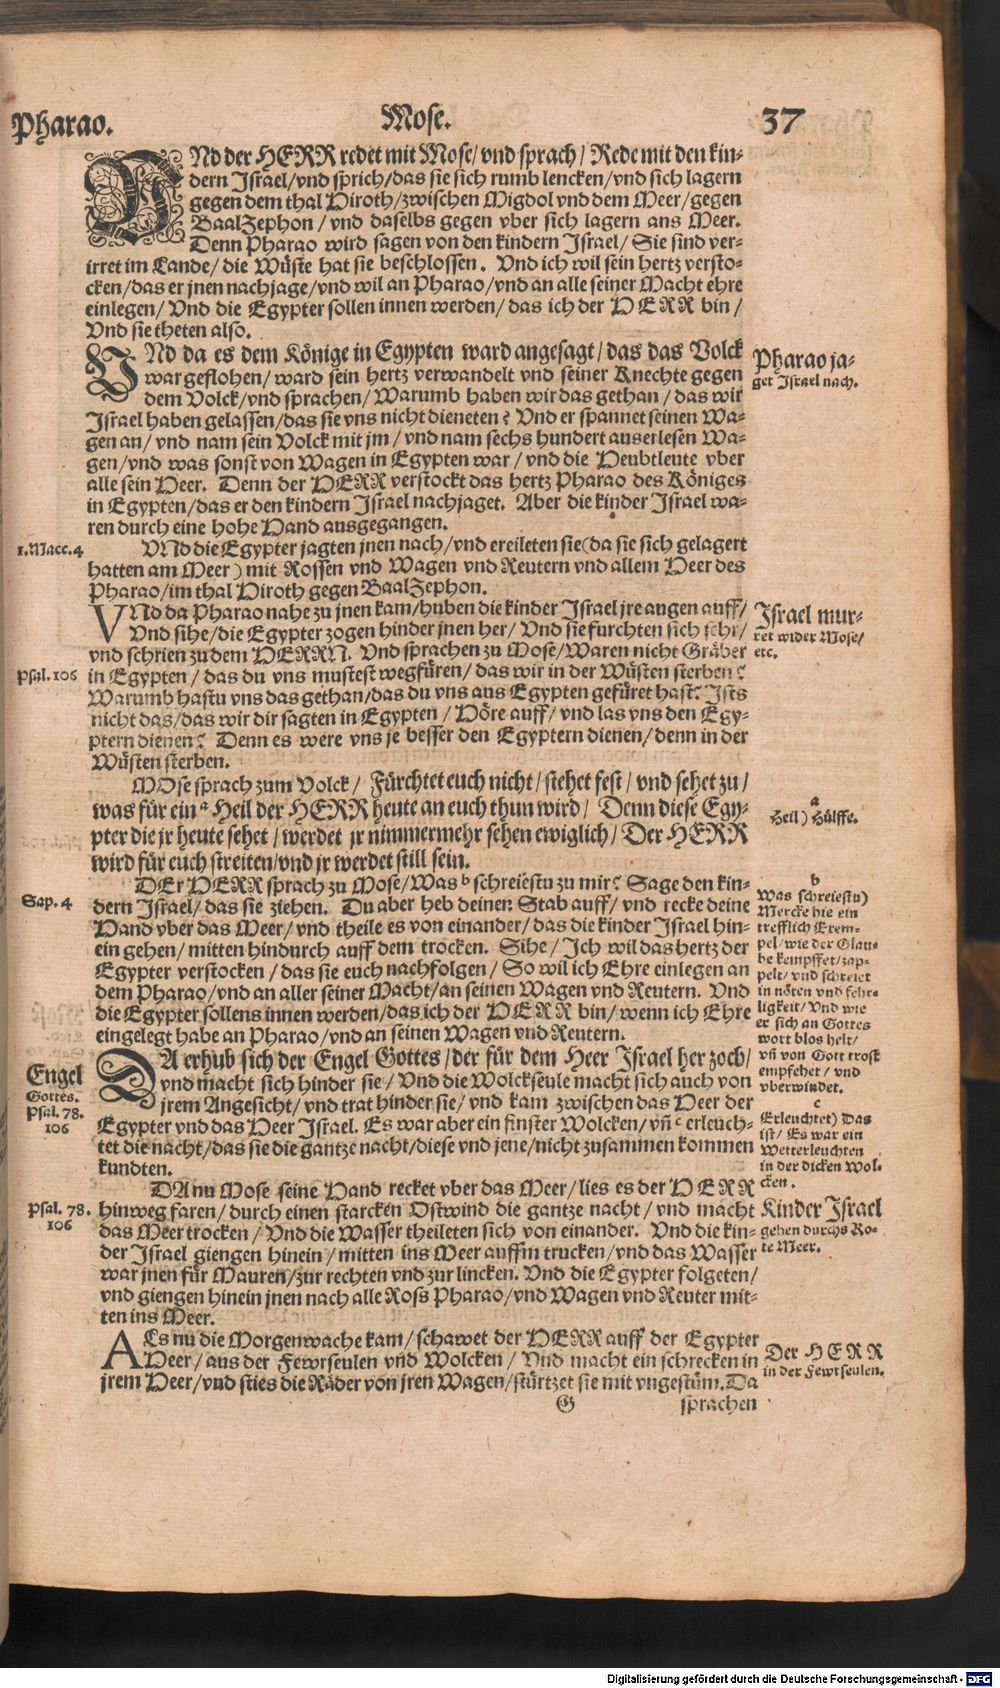 Pharao.
Mose.
37
VNd der HERR redet mit Mose/ vnd sprach/ Rede mit den kin-
dern Israel/vnd sprich/das sie sich rumb lencken/vnd sich lagern
gegen dem thal Hiroth/zwischen Migdol vnd dem Meer/gegen
BaalZephon/ vnd daselbs gegen vber sich lagern ans Meer.
Denn Pharao wird sagen von den kindern Israel/ Sie sind ver-
irret im Lande/ die Wüste hat sie beschlossen. Vnd ich wil sein hertz versto-
cken/das er jnen nachjage/vnd wil an Pharao/vnd an alle seiner Macht ehre
einlegen/ Vnd die Egypter sollen innen werden/ das ich der HERR bin/
Vnd sie theten also.
VNd da es dem Könige in Egypten ward angesagt/ das das Volck
war geflohen/ ward sein hertz verwandelt vnd seiner Knechte gegen
dem Volck/vnd sprachen/ Warumb haben wir das gethan/ das wir
Israel haben gelassen/das sie vns nicht dieneten? Vnd er spannet seinen Wa-
gen an/ vnd nam sein Volck mit jm/ vnd nam sechs hundert auserlesen Wa-
gen/vnd was sonst von Wagen in Egypten war/ vnd die Heubtleute vber
alle sein Heer. Denn der HERR verstockt das hertz Pharao des Königes
in Egypten/das er den kindern Israel nachjaget. Aber die kinder Israel wa-
ren durch eine hohe Hand ausgegangen.
Pharao ja-
get Israel nach.
1.Macc.4
VNd die Egypter jagten jnen nach/vnd ereileten sie (da sie sich gelagert
hatten am Meer) mit Rossen vnd Wagen vnd Reutern vnd allem Heer des
Pharao/im thal Hiroth gegen BaalZephon.
VNd da Pharao nahe zu jnen kam/huben die kinder Israel jre augen auff/
Vnd sihe/die Egypter zogen hinder jnen her/ Vnd sie furchten sich sehr/
vnd schrien zu dem HERRN. Vnd sprachen zu Mose/Waren nicht Gräber
in Egypten/ das du vns mustest wegfüren/ das wir in der Wüsten sterben?
Warumb hastu vns das gethan/das du vns aus Egypten gefüret hast? Ists
nicht das/das wir dir sagten in Egypten/ Höre auff/ vnd las vns den Egy-
ptern dienen? Denn es were vns je besser den Egyptern dienen/ denn in der
Wüsten sterben.
Israel mur-
ret wider Mose/
etc.
Psal. 106
MOse sprach zum Volck/ Fürchtet euch nicht/ stehet fest/ vnd sehet zu/
was für ein a Heil der HERR heute an euch thun wird/ Denn diese Egy-
pter die jr heute sehet/ werdet jr nimmermehr sehen ewiglich/ Der HERR
wird für euch streiten/vnd jr werdet still sein.
a
Heil) Hülffe.
DEr HERR sprach zu Mose/Was b schreiestu zu mir? Sage den kin-
dern Israel/ das sie ziehen. Du aber heb deinen Stab auff/ vnd recke deine
Hand vber das Meer/ vnd theile es von einander/ das die kinder Israel hin-
ein gehen/ mitten hindurch auff dem trocken. Sihe/ Ich wil das hertz der
Egypter verstocken/ das sie euch nachfolgen/ So wil ich Ehre einlegen an
dem Pharao/vnd an aller seiner Macht/an seinen Wagen vnd Reutern. Vnd
die Egypter sollens innen werden/das ich der HERR bin/ wenn ich Ehre
eingelegt habe an Pharao/vnd an seinen Wagen vnd Reutern.
Sap. 4
b
Was schreiestu)
Mercke hie ein
trefflich Exem-
pel/wie der Glau-
be kempffet/zap-
pelt/ vnd schreiet
in nöten vnd fehr-
ligkeit/ Vnd wie
er sich an Gottes
wort blos helt/
vñ von Gott trost
empfehet/ vnd
vberwindet.
DA erhub sich der Engel Gottes/der für dem Heer Israel her zoch/
vnd macht sich hinder sie/ Vnd die Wolckseule macht sich auch von
jrem Angesicht/ vnd trat hinder sie/ vnd kam zwischen das Heer der
Egypter vnd das Heer Israel. Es war aber ein finster Wolcken/ vñ c erleuch-
tet die nacht/das sie die gantze nacht/diese vnd jene/nicht zusammen kommen
kundten.
Engel
Gottes.
Psal. 78.
106
c
Erleuchtet) Das
ist/ Es war ein
Wetterleuchten
in der dicken Wol-
cken.
DA nu Mose seine Hand recket vber das Meer/ lies es der HERR
hinweg faren/ durch einen starcken Ostwind die gantze nacht/ vnd macht
das Meer trocken/ Vnd die Wasser theileten sich von einander. Vnd die kin-
der Israel giengen hinein/ mitten ins Meer auffm trucken/ vnd das Wasser
war jnen für Mauren/zur rechten vnd zur lincken. Vnd die Egypter folgeten/
vnd giengen hinein jnen nach alle Ross Pharao/vnd Wagen vnd Reuter mit-
ten ins Meer.
Psal. 78.
106
Kinder Israel
gehen durchs Ro-
te Meer.
ALs nu die Morgenwache kam/ schawet der HERR auff der Egypter
Heer/ aus der Fewrseulen vnd Wolcken/ Vnd macht ein schrecken in
jrem Heer/vnd sties die Räder von jren Wagen/stürtzet sie mit vngestüm. Da
Der HERR
in der Fewrseulen.
G
sprachen
Digitalisierung gefördert durch die Deutsche Forschungsgemeinschaft - DFG